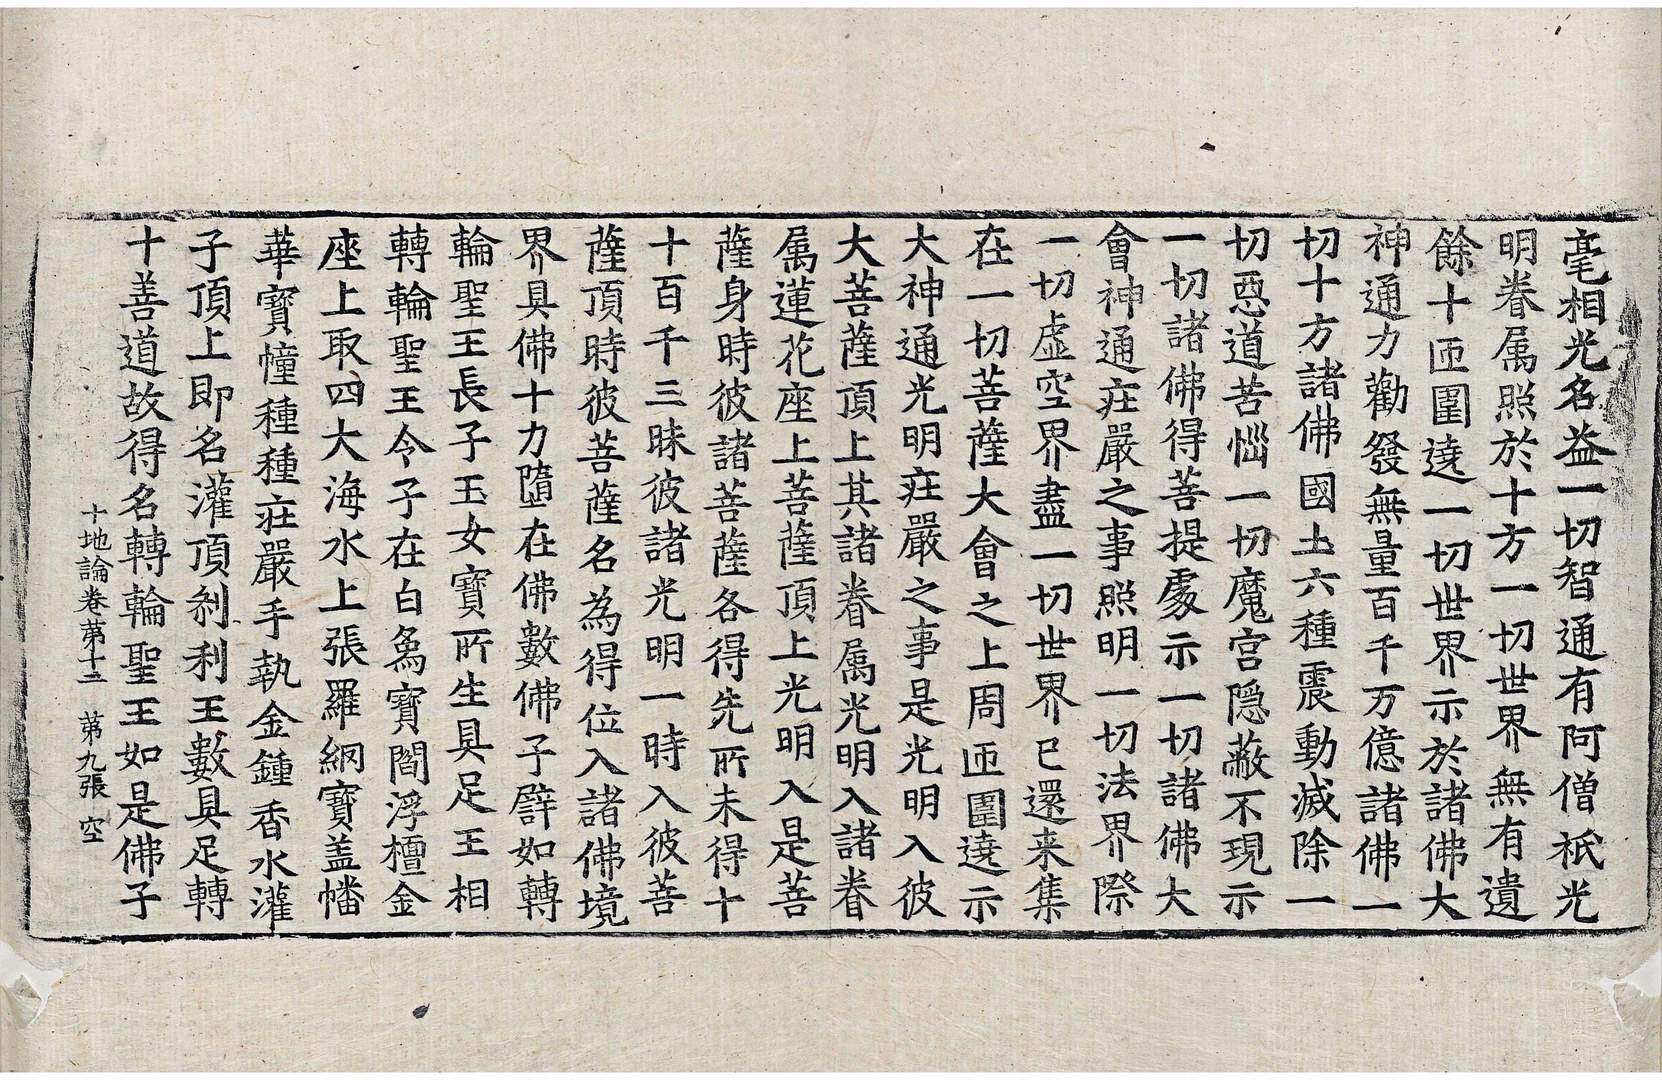 毫相光名益一切智通有阿僧祇光
明眷属照於十方一切世界無有遺
餘十匝圍遶一切世界示於諸佛大
神通力勸發無量百千万億諸佛一
切十方諸佛國土六種震動滅除一
切惡道苦惱一切魔宮隱蔽不現示
一切諸佛得菩提處示一切諸佛大
會神通莊嚴之事照明一切法界際
一切虛空界盡一切世界已還来集
在一切菩薩大會之上周匝圍遶示
大神通光明莊嚴之事是光明入彼
大菩薩頂上其諸眷属光明入諸眷
属蓮花座上菩薩頂上光明入是菩
薩身時彼諸菩薩各得先所未得十
十百千三昧彼諸光明一時入彼菩
薩頂時彼菩薩名為得位入諸佛境
界具佛十力墮在佛數佛子譬如轉
輪聖王長子玉女寶所生具足王相
轉輪聖王令子在白象寶閻浮檀金
座上取四大海水上張羅網寶盖幡
華寶幢種種莊嚴手執金鍾香水灌
子頂上即名灌頂刹利王數具足轉
十善道故得名轉輪聖王如是佛子
十地論卷第十二 第九張 空